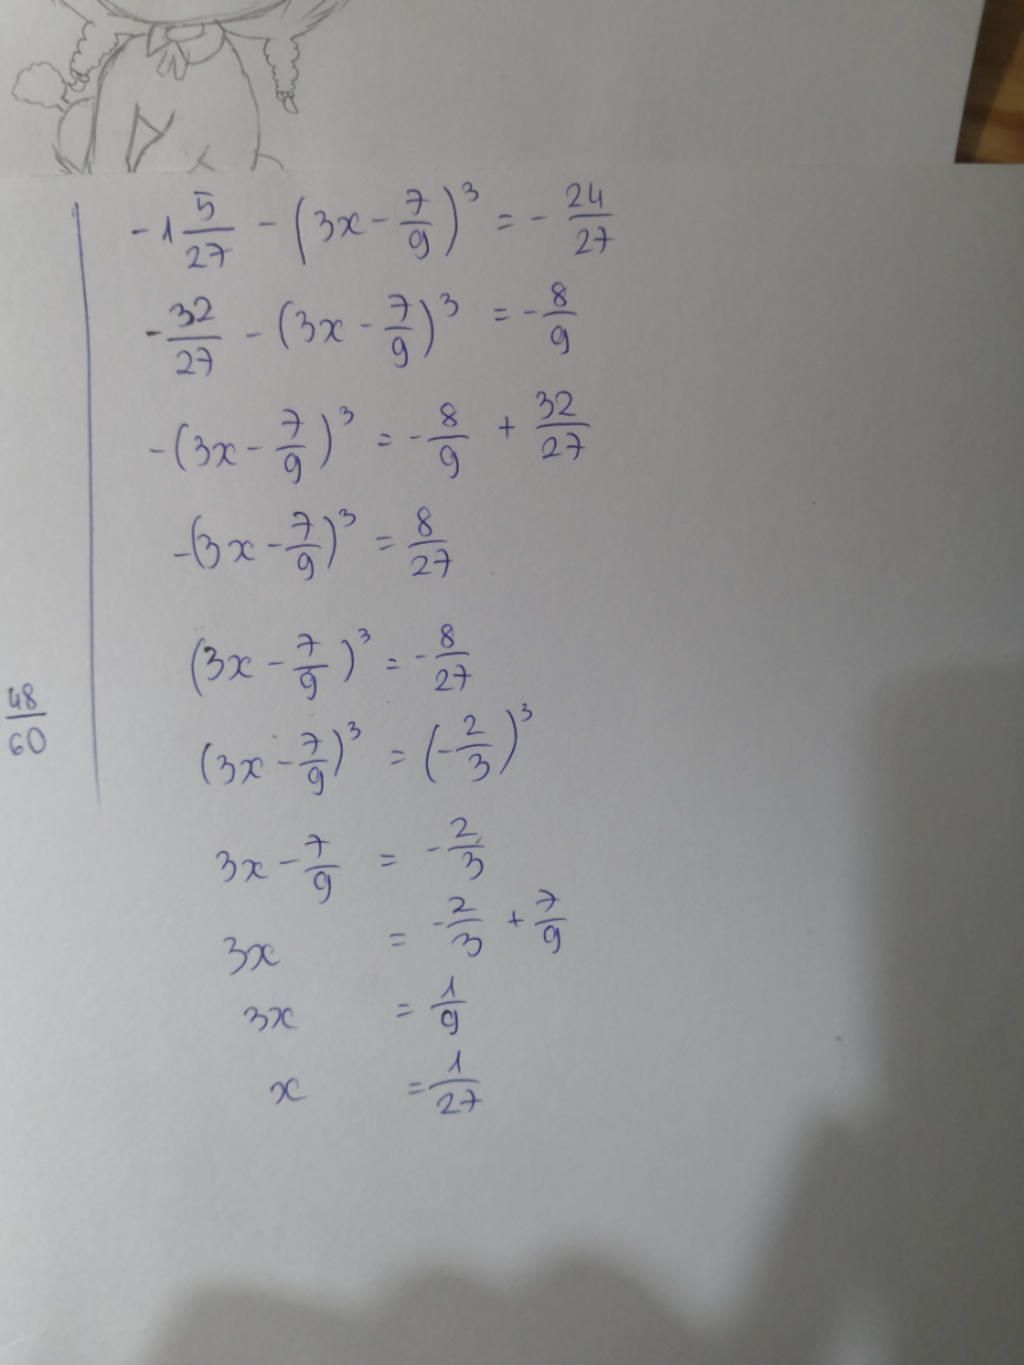 -1 5/27 - (3x - 7/9)³ = - 24/27
- 32/27 - (3x - 7/9)³ = - 8/9
-(3x - 7/9)³ = - 8/9 + 32/27
-(3x - 7/9)³ = 8/27
(3x - 7/9)³ = - 8/27
48/60
(3x - 7/9)³ = (- 2/3)³
3x - 7/9 = - 2/3
3x = - 2/3 + 7/9
3x = 1/9
x = 1/27